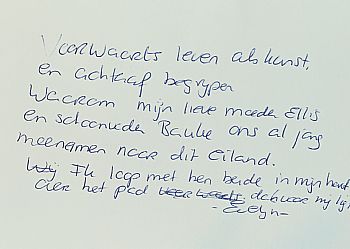 Voorwaarts leven als kunst,
en achteraf begrypen
Waarom mijn lieve moeder Ellis
en schoonvader Bauke ons al jong
meenamen naar dit Eiland.
Wij Ik loop met hen beide in mijn hart
over het pad
-Evelyn-